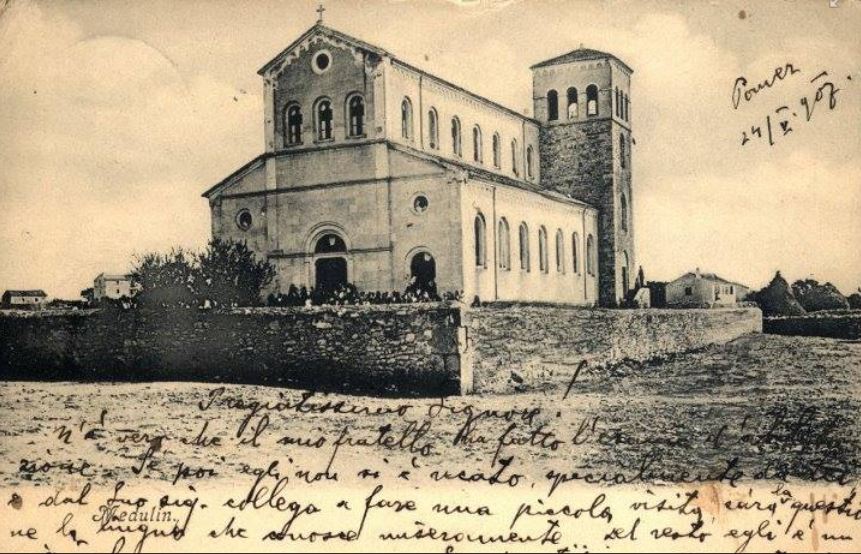 Pomer
24/V. 907.
Pregiatissimo Signore!
N'è vero che il mio fratello ha fatto l'esame d'
zione. Se poi egli non si è recato, specialmente da
e dal Suo sig. collega a fare una piccola visita, causa la questio
Medulin.
ne la lingua che conosce miseramente. Del resto egli è un